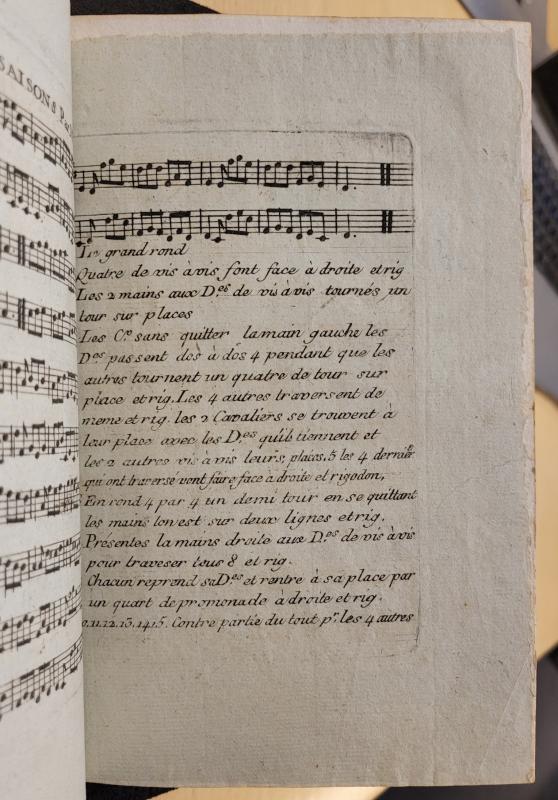 SAISONS
Le grand rond
Quatre de vis àvis, font face à droite et rig
Les 2 mains aux D.es de vis à vis tournés un
tour sur places
Les C.rs sans quitter la main gauche les
D.es passent dos à dos 4 pendant que les
autres tournent un quatre de tour sur
place et rig. Les 4 autres traversent de
meme et rig. les 2 Cavaliers se trouvent à
leur place avec les D.es qu'ils tiennent et
les 2 autres vis à vis leurs, places. 5 les 4 dernier
qui ont traversé vont faire face à droite et rigodon,
En rond 4 par 4 un demi tour en se quittant
les mains lon est sur deux lignes et rig.
Présentes la mains droite aux D.es de vis àvis
pour traveser tous 8 et rig.
Chacun reprend sa D.es et rentre à sa place par
un quart de promonade à droite et rig.
11.12.13.14.15. Contre partie du tout p.r les 4 autres